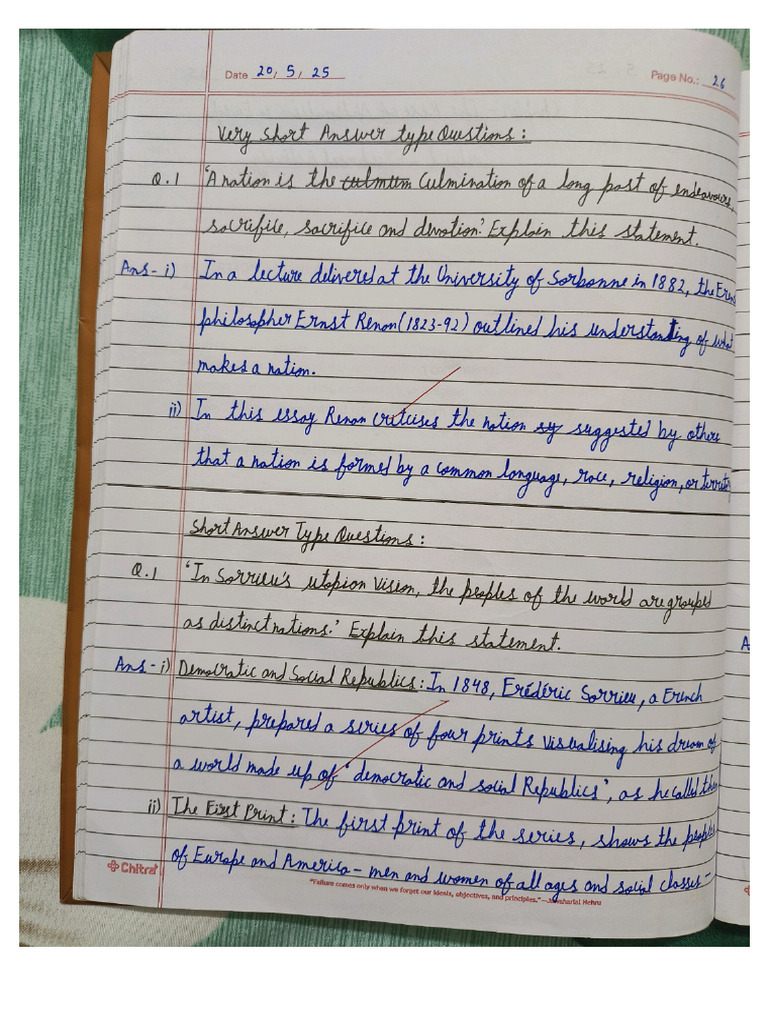 Date 20/5/25 Page No.: 26
Very Short Answer type Questions:
Q.1 'A nation is the culmtum Culmination of a long past of endeavours,
sacrifile, sacrifice and devotion.' Explain this statement.
Ans- i) In a lecture delivered at the University of Sorbonne in 1882, the
philosopher Ernst Renon (1823-92) outlined his understanting of what
makes a nation.
ii) In this essay Renon critcises the notion sy suggested by others
that a nation is formed by a common language, race, religion, or
Short Answer Type Questions:
Q.1 'In Sorrieu's utopion Vision, the peoples of the world are grouped
as distinct nations.' Explain this statement.
Ans- i) Democratic and Social Republics: In 1848, Frédéric Sorrieu, a French
artist, prepared a series of four prints visualising his dream of
a world made up of 'democratic and social Republics', as he called
ii) The First Print: The first print of the series, shows the peoples
of Europe and America - men and women of all ages and social classes -
Chitra
"Failure comes only when we forget our ideals, objectives, and principles."—Jawaharlal Nehru